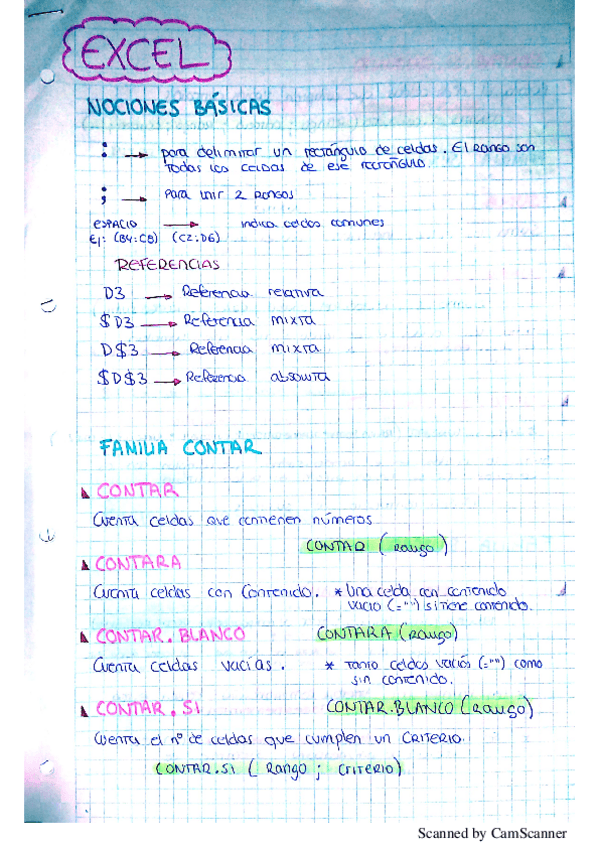 EXCEL
NOCIONES BÁSICAS
: → para delimitar un rectángulo de celdas. El rango son
todas las celdas de ese rectángulo.
; → Para unir 2 rangos
ESPACIO → indica celdas comunes
Ej: (B4:C8) (C2:D6)
REFERENCIAS
D3 → Referencia relativa
$D3 → Referencia mixta
D$3 → Referencia mixta
$D$3 → Referencia absoluta
FAMILIA CONTAR
CONTAR
Cuenta celdas que contienen números
CONTAR (rango)
CONTARA
Cuenta celdas con contenido. * Una celda con contenido
vacío (="") si tiene contenido.
CONTAR.BLANCO CONTARA (rango)
Cuenta celdas vacías. * Tanto celdas vacías (="") como
sin contenido.
CONTAR.SI CONTAR.BLANCO (rango)
Cuenta el nº de celdas que cumplen un CRITERIO.
CONTAR.SI (Rango ; CRITERIO)
Scanned by CamScanner